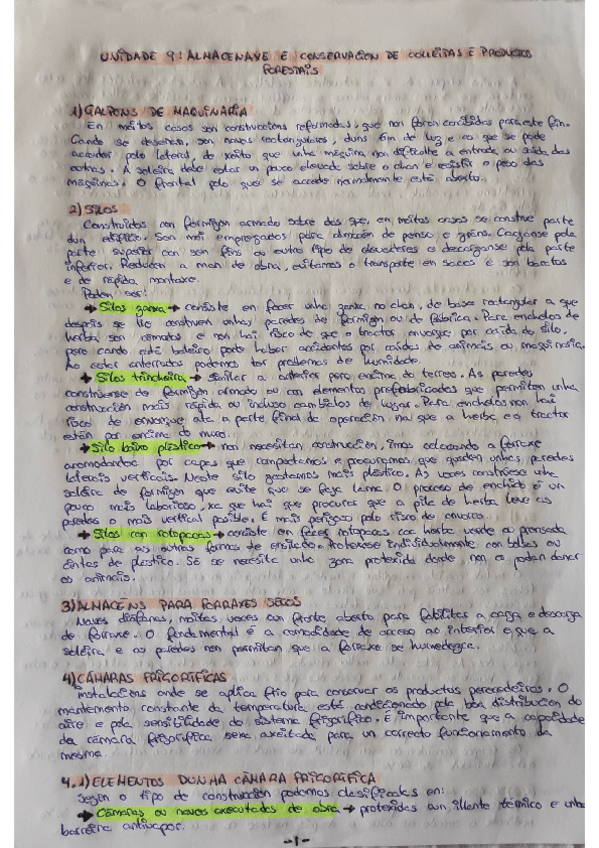 UNIDADE 9: ALMACENAXE E CONSERVACION DE COLLEITAS E PRODUCTOS
FORESTAIS
1) GALPONS DE MAQUINARIA
En moitos casos son construccions reformadas, que non foron concibidas para este fin.
Cando se deseñan, son naves rectangulares, duns 6m de luz e ao que se pode
acceder polo lateral, de xeito que unha máquina non dificulte a entrada ou saída das
outras. A soleira debe estar un pouco elevada sobre o chan e resistir o peso das
máquinas. O frontal polo que se accede normalmente está aberto.
2) SILOS
Construidos con formigon armado sobre dos que, en moitas casos se constrúe parte
dun edificio. Son moi empregados para almacén de penso e grans. Cárganse pola
parte superior con sen fins ou outro tipo de elevadores e descarganse pola parte
inferior. Reducen a man de obra, evitamos o transporte en sacos e son baratos
e de rápida montaxe.
Poden ser:
→ Silos zanxa → consiste en facer unha zanxa no chan, de base rectangular a que
despois se lle construen unhas paredes de formigon ou de fabrica. Para enchelos de
herba son cómodos e non hai risco de que o tractor envorque por caída do silo,
pero cando está baleiro pode haber accidentes por caídas de animais ou maquinaria.
Ao estar enterrados podemos ter problemas de humidade.
→ Silos trincheira → similar a anterior pero encima do terreo. As paredes
constrúense de formigon armado ou con elementos prefabricados que permiten unha
construcción mais rápida ou incluso cambialos de lugar. Para enchelos non hai
risco de envorque ata a parte final da operación na que a herba e o tractor
están por encima do muro.
→ Silo baixo plástico → non necesitan construcción, imos colocando a forraxe
amontoando por capas que compactamos e procuramos que queden unhas paredes
laterais verticais. Neste silo gastamos mais plástico. As veces constrúese unha
soleira de formigon que evite que se faga lama. O proceso de enchido é un
pouco mais laborioso, xa que hai que procurar que a pila de herba leve as
paredes o mais vertical posible. E mais perigoso polo risco de envorco.
→ Silos con rotopacas → consiste en facer rotopacas coa herba verde ou prensada
como para as outras formas de ensilado. Protexese individualmente con bolsas ou
cintas de plástico. Só se necesita unha zona protexida donde non a podan danar
os animais.
3) ALMACÉNS PARA FORRAXES SECOS
Naves diáfanas, moitas veces cun fronte aberto para facilitar a carga e descarga
de forraxe. O fundamental é a comodidade de acceso ao interior e que a
soleira e as paredes non permitan que a forraxe se humedezca.
4) CÁMARAS FRIGORÍFICAS
Instalacions onde se aplica frío para conservar os productos perecedeiros. O
mantemento constante da temperatura está condicionado pola boa distribucion do
aire e pola sensibilidade do sistema frigorífico. É importante que a capacidade
da cámara frigorífica sexa axeitada para un correcto funcionamento da
mesma.
4.1) ELEMENTOS DUNHA CÁMARA FRIGORÍFICA
Segon o tipo de construcción podemos clasificalas en:
→ Cámaras ou naves executadas de obra → protexidas cun illante térmico e unha
barreira antivapor.
-1-